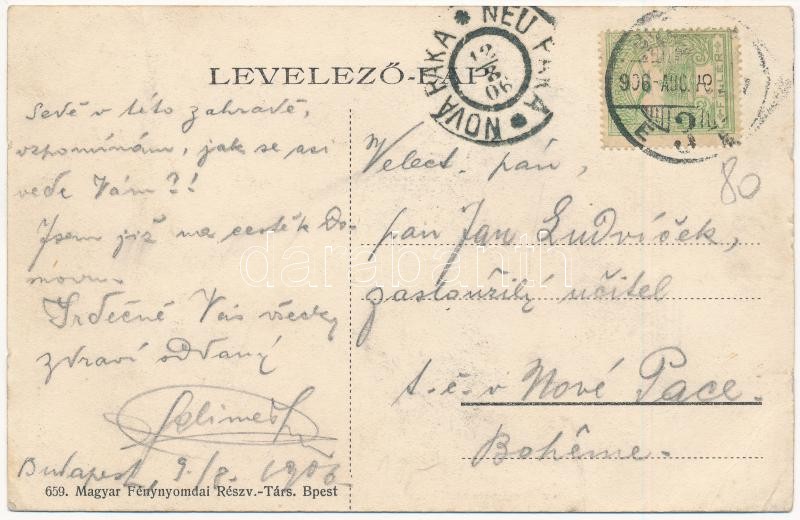 LEVELEZŐ-LAP
NEU PAKA * NOVA PAKA *
12/8 06
906 AUG.
3
FILLÉR
80
Sedě v této zahradě,
vzpomínám, jak se asi
vede Vám?!
Jsem již na cestě k Do-
movu.
Srdečně Vás všecky
zdraví oddaný
Budapest, 9/8. 1906
659. Magyar Fénynyomdai Részv.-Társ. Bpest
Velect. pán,
pan Jan Ludvíček,
zasloužilý učitel
t. č. v Nové Pace.
Bohême.
darabanth